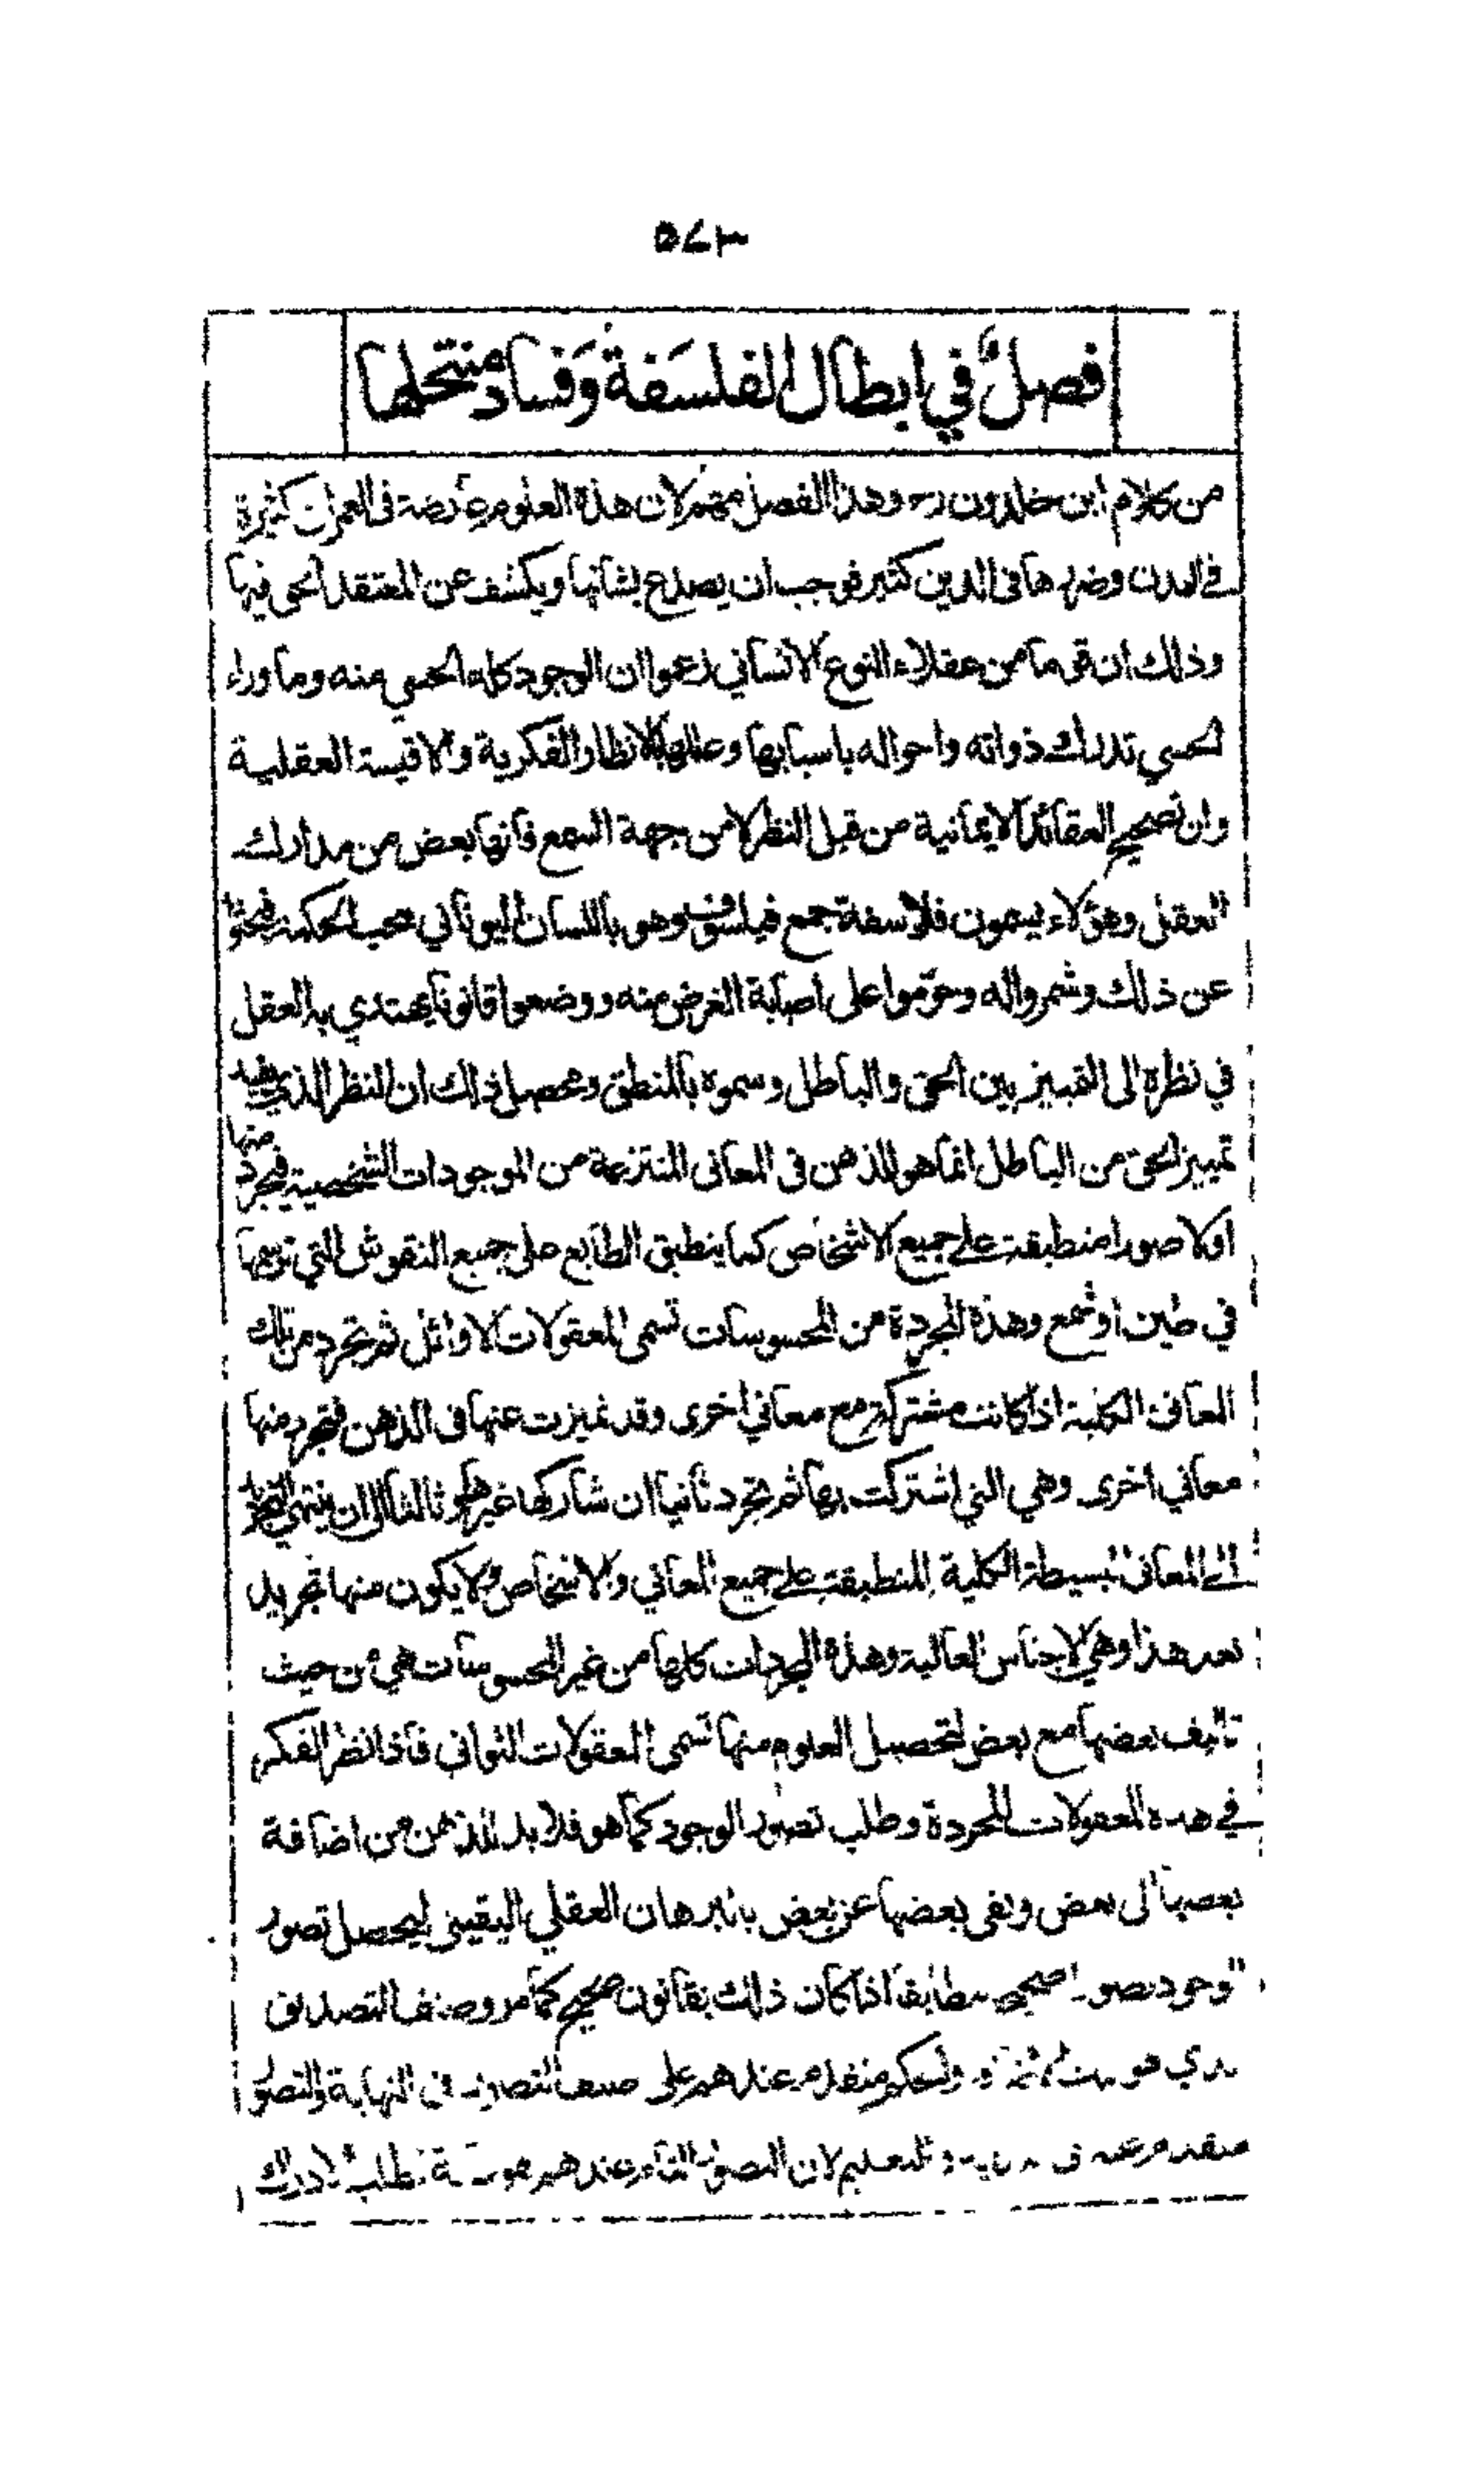 ٥٧٣
فصل في ابطال الفلسفة وفساد منتحلها
من كلام ابن خلدون رح وهذا الفصل مهم لان هذه العلوم عارضة فى العمران كثيرة
في المدن وضررها فى الدين كثير فوجب ان يصدع بشانها ويكشف عن المعتقد الحق فيها
وذلك ان قوما من عقلاء النوع الانساني زعموا ان الوجود كله الحسي منه وما وراء
الحسي تدرك ذواته واحواله باسبابها وعللها بالانظار الفكرية والاقيسة العقلية
وان تصحيح العقائد الايمانية من قبل النظر لا من جهة السمع فانها بعض من مدارك
العقل وهؤلاء يسمون فلاسفة جمع فيلسوف وهو باللسان اليوناني محب الحكمة فبحثوا
عن ذلك وشمروا له وحوّموا على اصابة الغرض منه ووضعوا قانونا يهتدي به العقل
في نظره الى التمييز بين الحق والباطل وسموه بالمنطق ومحصل ذلك ان النظر الذي يفيد
تمييز الحق من الباطل انما هو للذهن فى المعانى المنتزعة من الموجودات الشخصية فيجرد منها
اولا صورا منطبقة على جميع الاشخاص كما ينطبق الطابع على جميع النقوش التي ترسمها
في طين او شمع وهذه المجردة من المحسوسات تسمى المعقولات الاوائل ثم تجرد من تلك
المعانى الكلية اذا كانت مشتركة مع معاني اخرى وقد تميزت عنها فى الذهن فتجرد منها
معاني اخرى وهي التي اشتركت بها ثم تجرد ثانيا ان شاركها غيرها وثالثا الى ان ينتهي التجريد
الى المعانى البسيطة الكلية المنطبقة على جميع المعاني والاشخاص ولا يكون منها تجريد
بعد هذا وهي الاجناس العالية وهذه المجردات كلها من غير المحسوسات هي من حيث
تاليف بعضها مع بعض لتحصيل العلوم منها تسمى المعقولات الثوانى فاذا نظر الفكر
في هذه المعقولات المجردة وطلب تصور الوجود كما هو فلا بد للذهن من اضافة
بعضها الى بعض ونفى بعضها عن بعض بالبرهان العقلي اليقينى ليحصل تصور
الوجود تصورا صحيحا مطابقا اذا كان ذلك بقانون صحيح كما مر وصنف التصديق
الذي هو والحكم متقدم عندهم على صنف التصور فى النهاية والتصور
متقدم عليه فى والتعليم لان التصور التام عندهم هو لطلب الادراك